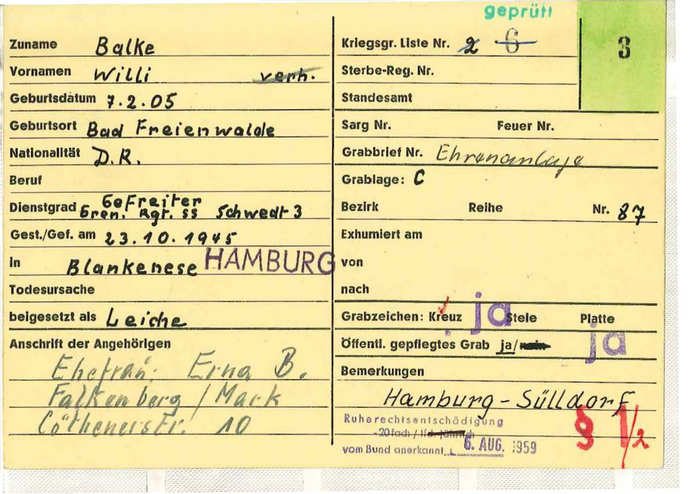 geprüft
3
Zuname Balke
Vornamen Willi verh.
Geburtsdatum 7.2.05
Geburtsort Bad Freienwalde
Nationalität D.R.
Beruf
Dienstgrad Gefreiter
Gren. Rgt. SS Schwedt 3
Gest./Gef. am 23.10.1945
in Blankenese HAMBURG
Todesursache
beigesetzt als Leiche
Anschrift der Angehörigen
Ehefrau: Erna B.
Falkenberg / Mark
Cöthenerstr. 10
Kriegsgr. Liste Nr. 2 6
Sterbe-Reg. Nr.
Standesamt
Sarg Nr. Feuer Nr.
Grabbrief Nr. Ehrenanlage
Grablage: C
Bezirk Reihe Nr. 87
Exhumiert am
von
nach
Grabzeichen: Kreuz ja Stele Platte
Öffentl. gepflegtes Grab ja/nein ja
Bemerkungen
Hamburg-Sülldorf
Ruherechtsentschädigung
20fach / lfd. jährlich
vom Bund anerkannt 6. AUG. 1959
§ 1/2